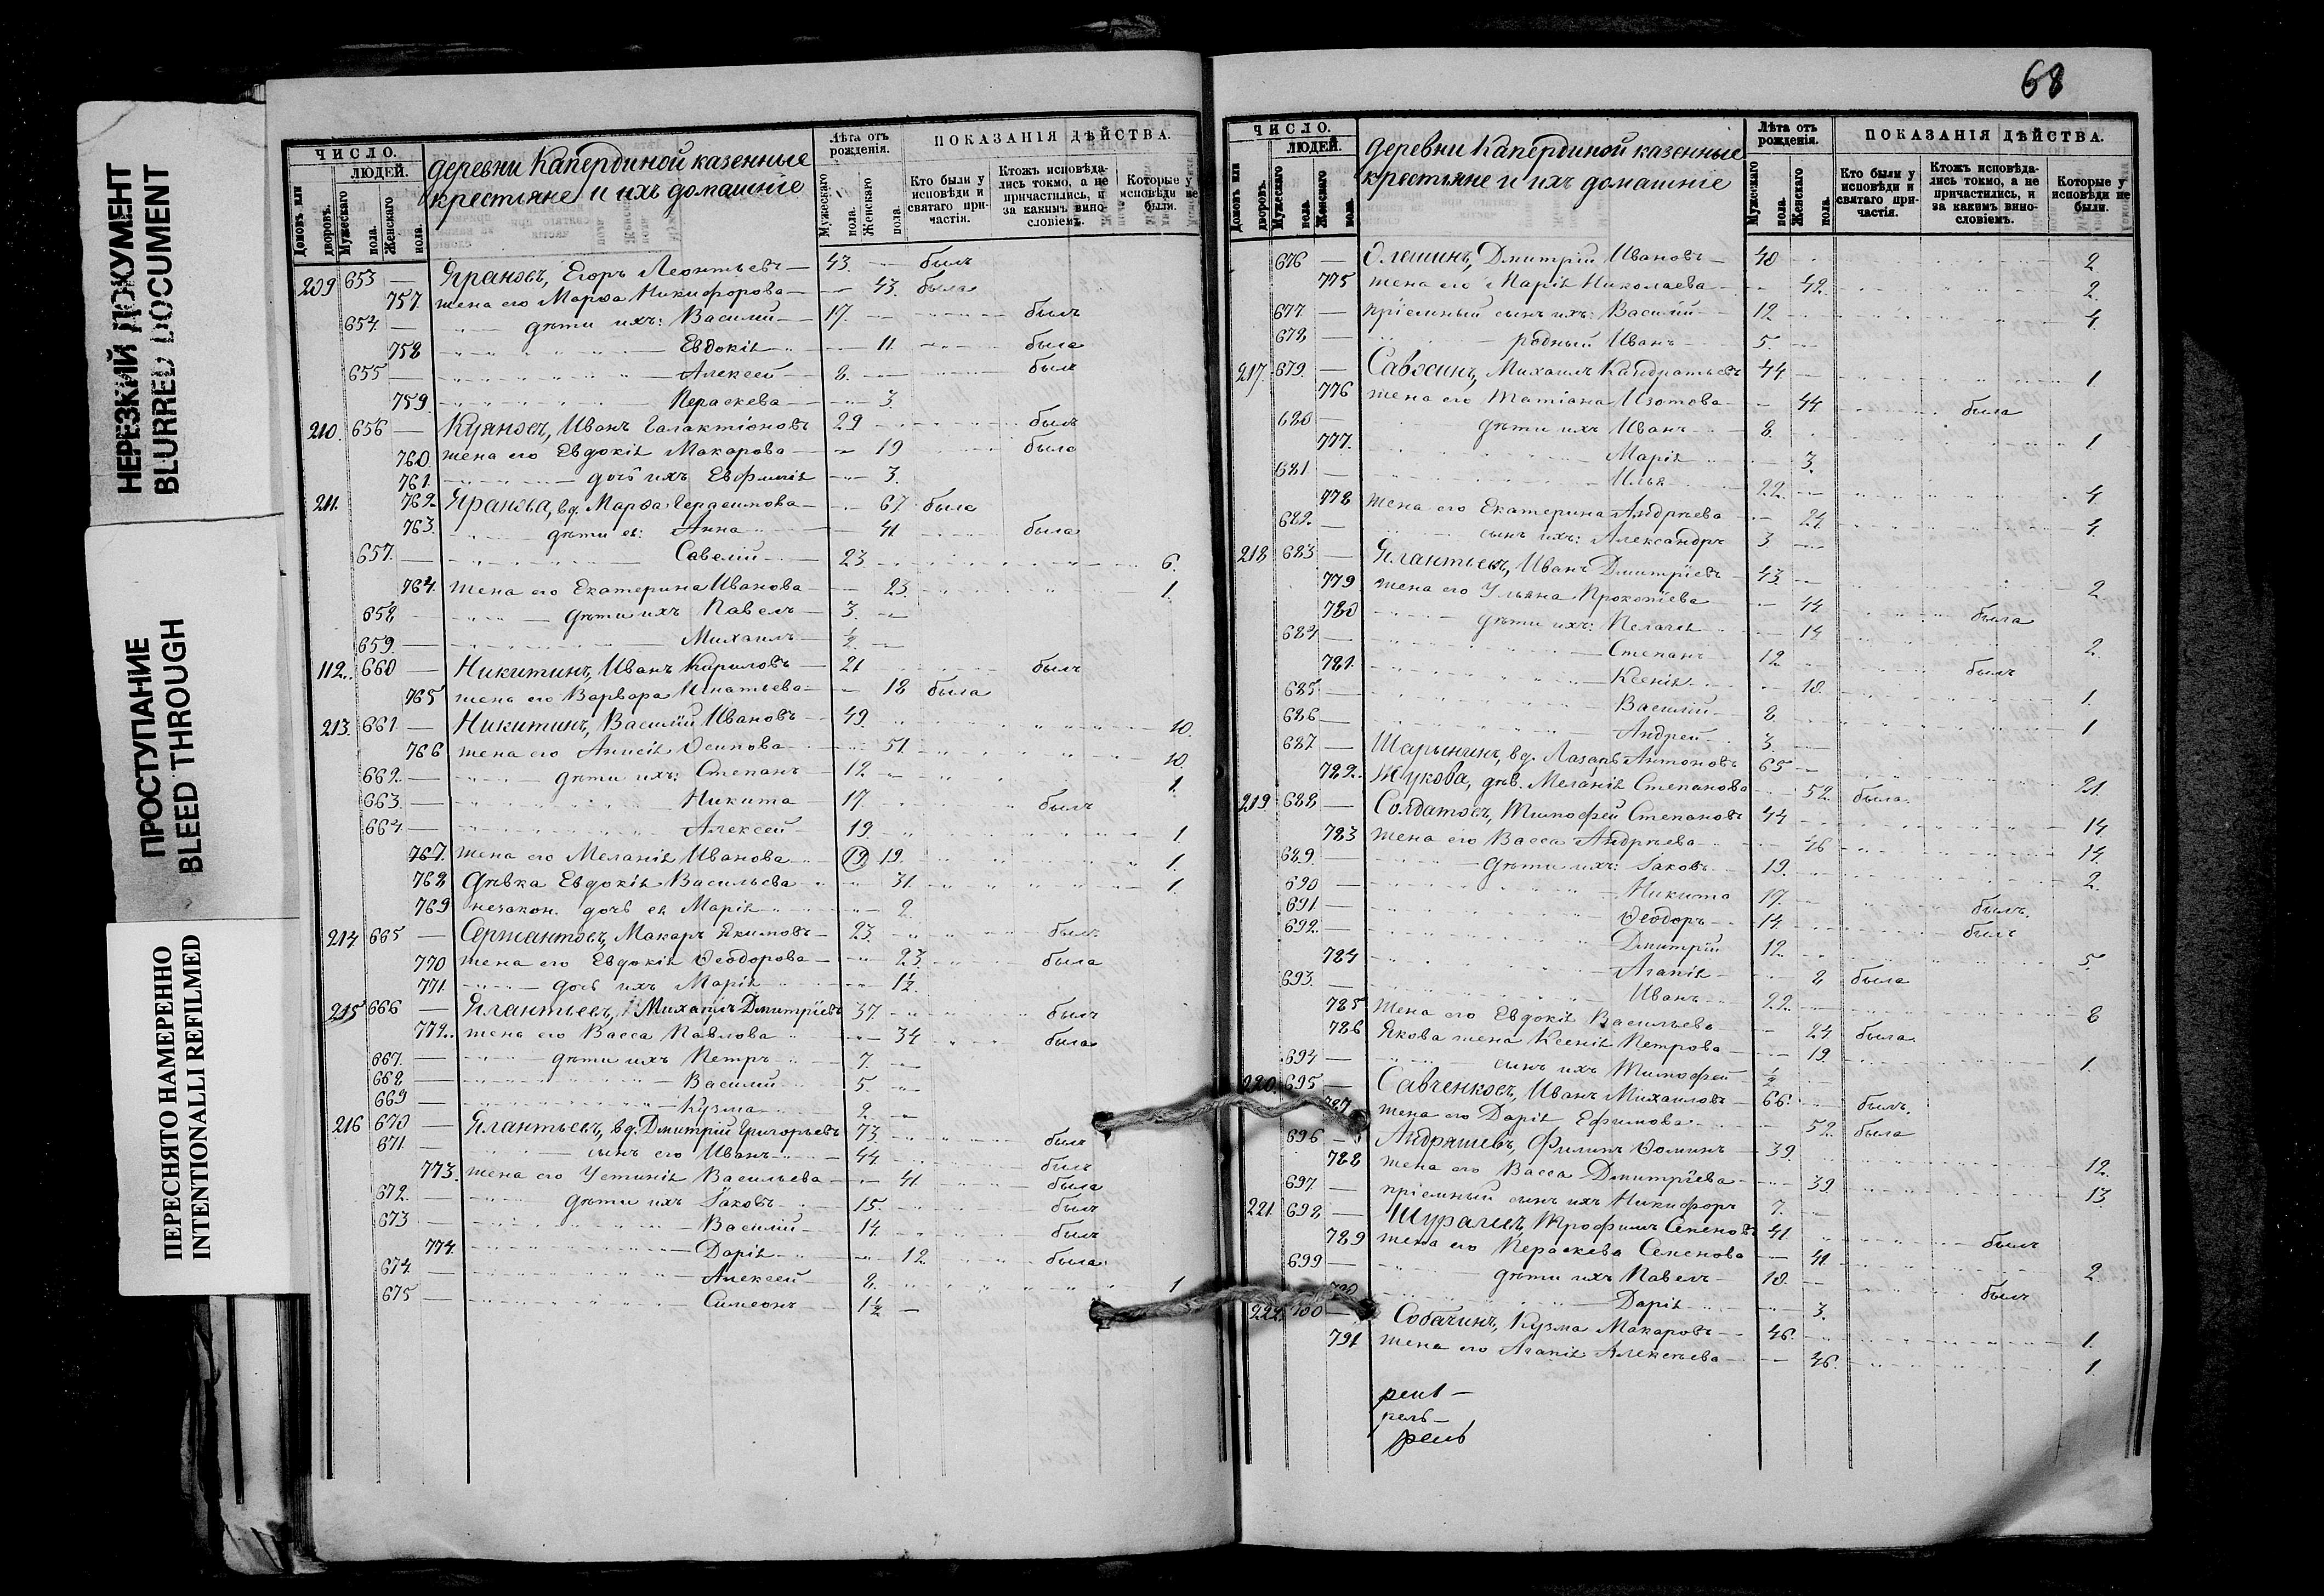 НЕРЕЗКИЙ ДОКУМЕНТ
BLURRED DOCUMENT
ПРОСТУПАНИЕ
BLEED THROUGH
ПЕРЕСНЯТО НАМЕРЕННО
INTENTIONALLI REFILMED
ЧИСЛО.
ЛЮДЕЙ.
Домовъ или дворовъ.
Мужескаго пола.
Женскаго пола.
деревни Капердиной казенные
крестьяне и ихъ домашніе
Лѣта отъ рожденія.
Мужескаго пола.
Женскаго пола.
ПОКАЗАНІЯ ДѢЙСТВА.
Кто были у исповѣди и святаго причастія.
Ктожъ исповѣдались токмо, а не причастились, и за какимъ винословіемъ.
Которые у исповѣди не были.
209 653 — Егоръ Леонтьевъ — 43 — былъ
757 жена его Марѳа Никифорова — 43 была
654 — дѣти ихъ: Василій — 17 — былъ
758 Евдокія — 11 была
655 — Алексей — 8 — былъ
759 Параскева — 3
210 656 — Иванъ Галактіоновъ 29 былъ
760 жена его Евдокія Макарова — 19 была
761 дочь ихъ Евфимія — 3
211 762 вд. Марѳа Герасимова — 67 была
763 дѣти ея: Анна — 41 была
657 — Савелій 23 6
764 жена его Екатерина Иванова — 23 1
658 дѣти ихъ Павелъ — 3 —
659 — Михаилъ — 1/2 —
112 660 — Никитинъ, Иванъ Кариловъ — 21 былъ
765 жена его Варвара Игнатьева — 18 была
213 661 — Никитинъ, Василій Ивановъ — 49 10
766 жена его Анисія Осипова 51 10
662 — дѣти ихъ: Степанъ — 12 — 1
663 — Никита 17 былъ
664 — Алексей 19 1
767 жена его Меланія Иванова 19 19 1
768 дѣвка Евдокія Васильева 31 1
769 незакон. дочь ея Марія 2
214 665 — Сержантовъ, Макаръ Якимовъ — 23 былъ
770 жена его Евдокія Ѳеодорова — 23 была
771 дочь ихъ Марія 1/2
215 666 — Ялантьевъ, Михаилъ Дмитріевъ 37 былъ
772 жена его Васса Павлова 34 была
667 — дѣти ихъ Петръ 7 —
668 — Василій 5 —
669 — Кузма 2 —
216 670 — Ялантьевъ, вд. Дмитрій Григорьевъ 73 былъ
671 — сынъ его Иванъ 44 былъ
773 жена его Устинія Васильева 41 была
672 дѣти ихъ Іаковъ 15 былъ
673 — Василій 14 былъ
774 Дарія 12 была
674 — Алексей 8 1
675 — Симеонъ 1 1/2 —
68
ЧИСЛО.
ЛЮДЕЙ.
Домовъ или дворовъ.
Мужескаго пола.
Женскаго пола.
деревни Капердиной казенные
крестьяне и ихъ домашніе
Лѣта отъ рожденія.
Мужескаго пола.
Женскаго пола.
ПОКАЗАНІЯ ДѢЙСТВА.
Кто были у исповѣди и святаго причастія.
Ктожъ исповѣдались токмо, а не причастились, и за какимъ винословіемъ.
Которые у исповѣди не были.
676 — Олешинъ, Дмитрій Ивановъ — 40 2
775 жена его Марія Николаева 42 2
677 — пріемный сынъ ихъ: Василій 12 4
678 — родный Иванъ 5
217 679 — Михаилъ Кандратьевъ 44 — 1
776 жена его Татіана Изотова — 44 была
680 — дѣти ихъ Иванъ 8 1
777 Марія 3
681 — Илья 22 — 4
778 жена его Екатерина Андрѣева — 24 4
682 — сынъ ихъ: Александръ 3 —
218 683 — Ялантьевъ, Иванъ Дмитріевъ 43 — 2
779 жена его Ульяна Прокопіева — 44 была
780 дѣти ихъ: Пелагія — 14 2
684 — Степанъ 12 былъ
781 Ксенія 10 1
685 — Василій 8 1
686 — Андрей 3
687 — Шарынинъ, вд. Лазарь Антоновъ 65 — 21
782 Жукова, дѣв. Меланія Степанова 52 была
219 688 — Солдатовъ, Тимофей Степановъ 44 14
783 жена его Васса Андрѣева 46 14
689 — дѣти ихъ: Іаковъ 19 2
690 — Никита 17 былъ
691 — Ѳеодоръ 14 былъ
692 — Дмитрій 12 5
784 Агапія 8 была
693 — Иванъ 22 8
785 жена его Евдокія Васильева 24 была
786 Якова жена Ксенія Петрова 19 1
694 — сынъ ихъ Тимофей 1/2
220 695 — Савченковъ, Иванъ Михаиловъ 66 былъ
787 жена его Дарія Ефимова 52 была
696 — Андряшевъ, Филипъ Ѳоминъ 39 12
788 жена его Васса Дмитріева 39 13
697 — пріемный сынъ ихъ Никифоръ 7
221 698 — Трофимъ Семеновъ 41 былъ
789 жена его Параскева Семенова 41 2
699 — дѣти ихъ Павелъ 10 — былъ
790 Дарія 3
222 700 — Собачинъ, Кузма Макаровъ 46 1
791 жена его Агапія Алексѣева 46 1